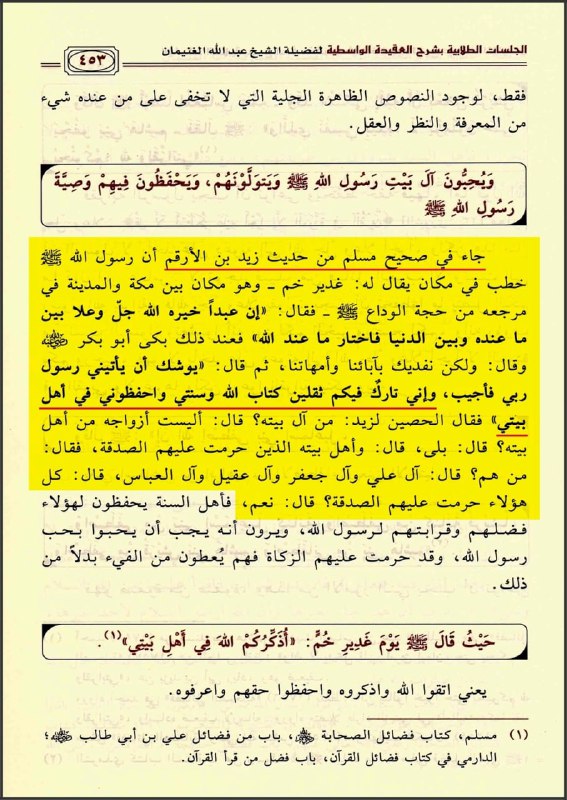 الجلسات الطلابية بشرح العقيدة الواسطية لفضيلة الشيخ عبد الله الغنيمان
٤٥٣
فقط، لوجود النصوص الظاهرة الجلية التي لا تخفى على من عنده شيء
من المعرفة والنظر والعقل.
وَيُحِبُّونَ آلَ بَيْتِ رَسُولِ اللهِ ﷺ وَيَتَوَلَّوْنَهُمْ، وَيَحْفَظُونَ فِيهِمْ وَصِيَّةَ
رَسُولِ اللهِ ﷺ
جاء في صحيح مسلم من حديث زيد بن الأرقم أن رسول الله ﷺ
خطب في مكان يقال له: غدير خم ـ وهو مكان بين مكة والمدينة في
مرجعه من حجة الوداع ﷺ ـ فقال: «إن عبداً خيره الله جلّ وعلا بين
ما عنده وبين الدنيا فاختار ما عند الله» فعند ذلك بكى أبو بكر رضي الله عنه
وقال: ولكن نفديك بآبائنا وأمهاتنا، ثم قال: «يوشك أن يأتيني رسول
ربي فأجيب، وإني تاركٌ فيكم ثقلين كتاب الله وسنتي واحفظوني في أهل
بيتي» فقال الحصين لزيد: من آل بيته؟ قال: أليست أزواجه من أهل
بيته؟ قال: بلى، قال: وأهل بيته الذين حرمت عليهم الصدقة، فقال:
من هم؟ قال: آل علي وآل جعفر وآل عقيل وآل العباس، قال: كل
هؤلاء حرمت عليهم الصدقة؟ قال: نعم، فأهل السنة يحفظون لهؤلاء
فضلهم وقرابتهم لرسول الله، ويرون أنه يجب أن يحبوا بحب
رسول الله، وقد حرمت عليهم الزكاة فهم يُعطون من الفيء بدلاً من
ذلك.
حَيْثُ قَالَ ﷺ يَوْمَ غَدِيرِ خُمٍّ: «أُذَكِّرُكُمْ اللهَ فِي أَهْلِ بَيْتِي»(١).
يعني اتقوا الله واذكروه واحفظوا حقهم واعرفوه.
(١) مسلم، كتاب فضائل الصحابة رضي الله عنهم، باب من فضائل علي بن أبي طالب رضي الله عنه؛
الدارمي في كتاب فضائل القرآن، باب فضل من قرأ القرآن.